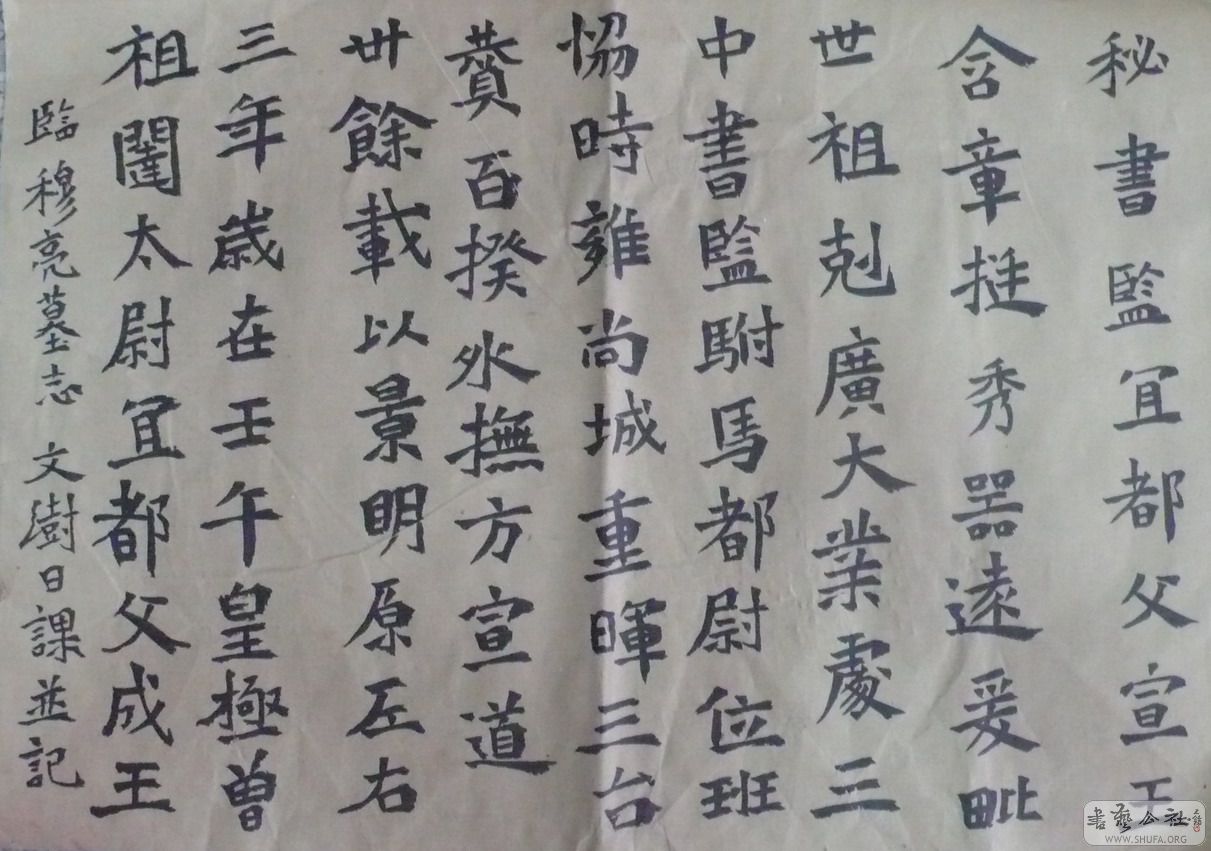 秘書監宜都父宣王
含章挺秀器遠爰毗
世祖剋廣大業處三
中書監駙馬都尉位班
恊時雍尚城重暉三台
賛百揆外撫方宣道
卅餘載以景明原左右
三年歲在壬午皇極曾
祖闥太尉宜都父成王
臨穆亮墓志 文澍日課並記
書藝公社
WWW.SHUFA.ORG